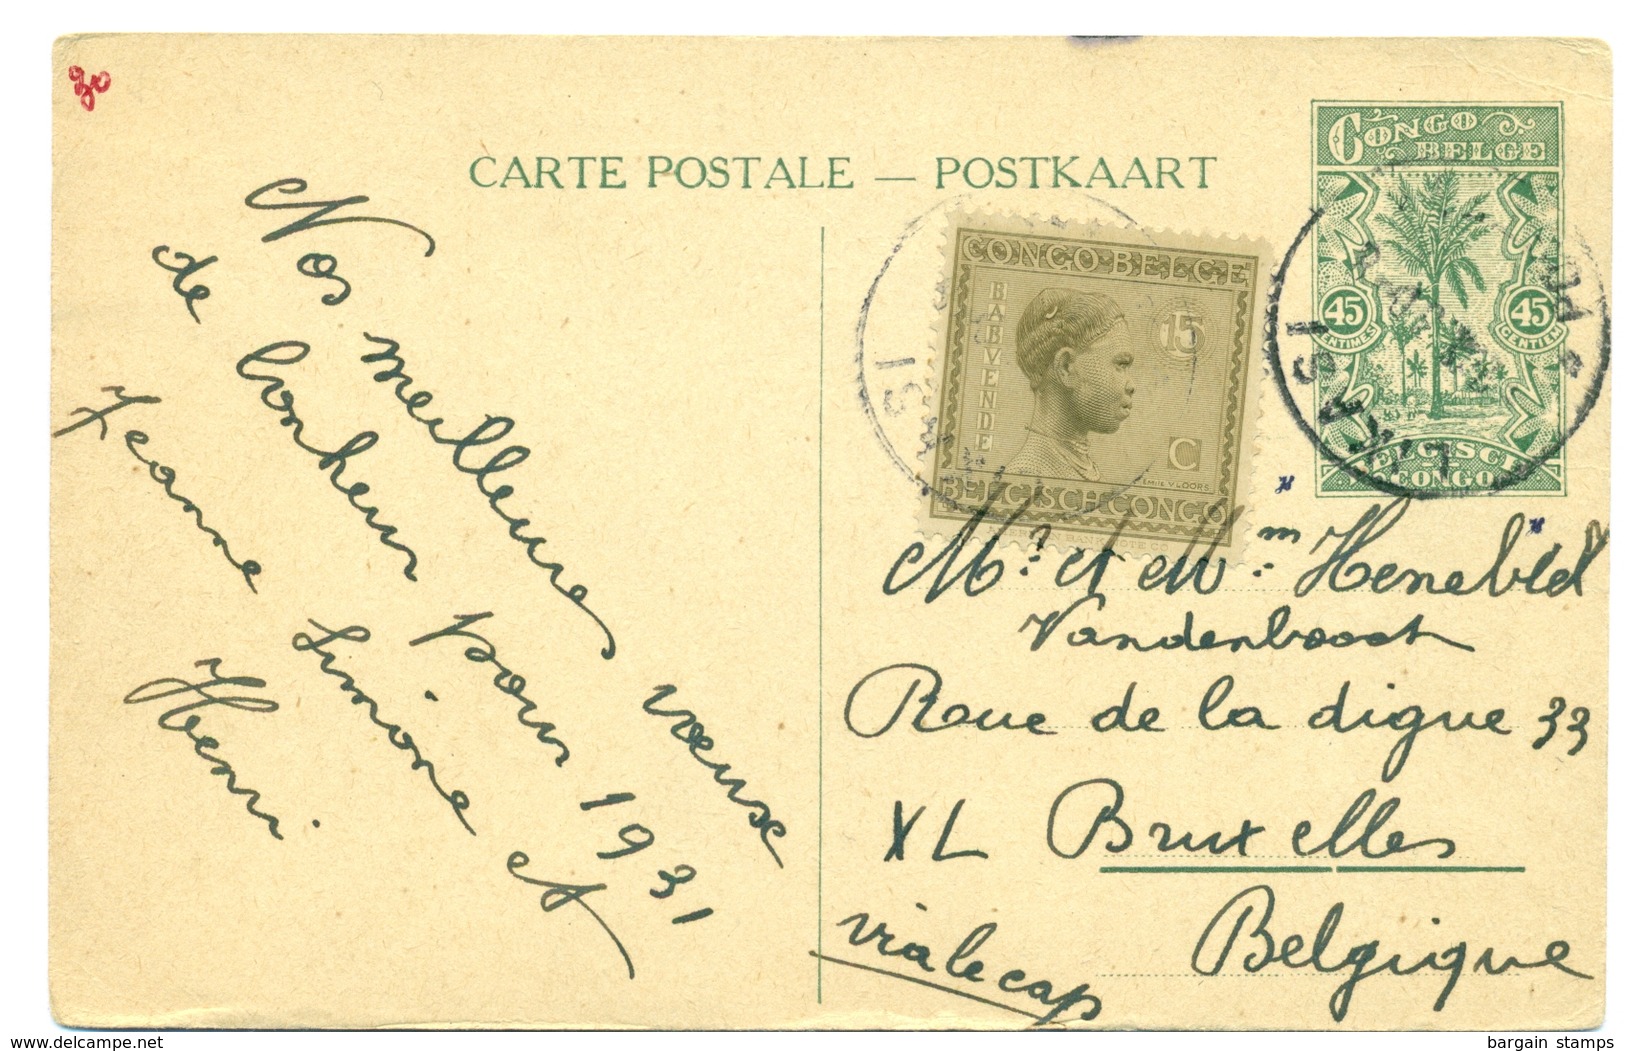 go
CARTE POSTALE — POSTKAART
CONGO
BELGE
45
CENTIMES
45
CENTIEM
BELGISCH
CONGO
CONGO BELGE
BABVENDE
15
C
EMILE VLOORS
BELGISCH-CONGO
LIKASI
LIKASI
Nos meilleurs vœux
de bonheur pour 1931
Jeanne Simone et
Henri
Mr et Mme Henebld
Vandenboock
Rue de la digue 33
XL Bruxelles
Belgique
via le cap
delcampe.net
bargain stamps